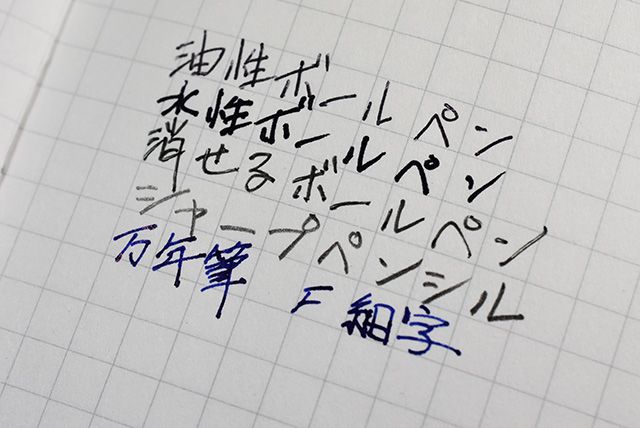 油性ボールペン
水性ボールペン
消せるボールペン
シャープペンシル
万年筆 F 細字